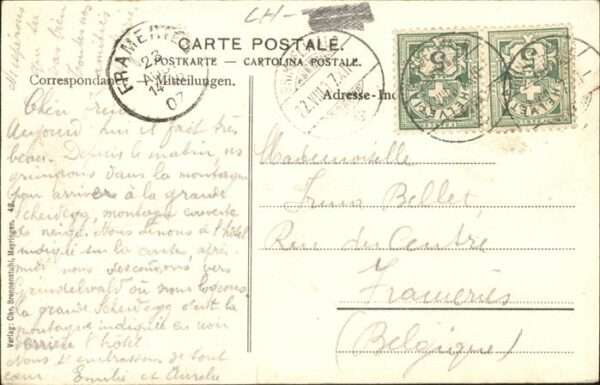 CH-
CARTE POSTALE.
POSTKARTE - CARTOLINA POSTALE.
Correspondance Mitteilungen.
Adresse-
FRAMERIES
23
14
07
22.VIII.
5
5
HELVETIA
HELVETIA
Aujourd'hui il fait très
beau. Depuis le matin, nous
grimpons dans la montagne
pour arriver à la grande
Scheidegg, montagne couverte
de neige. Nous dînons à l'hôtel
indiqué sur la carte, après-
midi nous descendons vers
Grindelwald où nous logeons
La grande Scheidegg c'est la
montagne indiquée en noir
derrière l'hôtel
Nous t'embrassons de tout
cœur. Emilie et Aurélie
Mademoiselle
Irma Bellet,
Rue du Centre
Frameries
(Belgique)
Verlag: Chr. Brennenstuhl, Meyringen. 42.